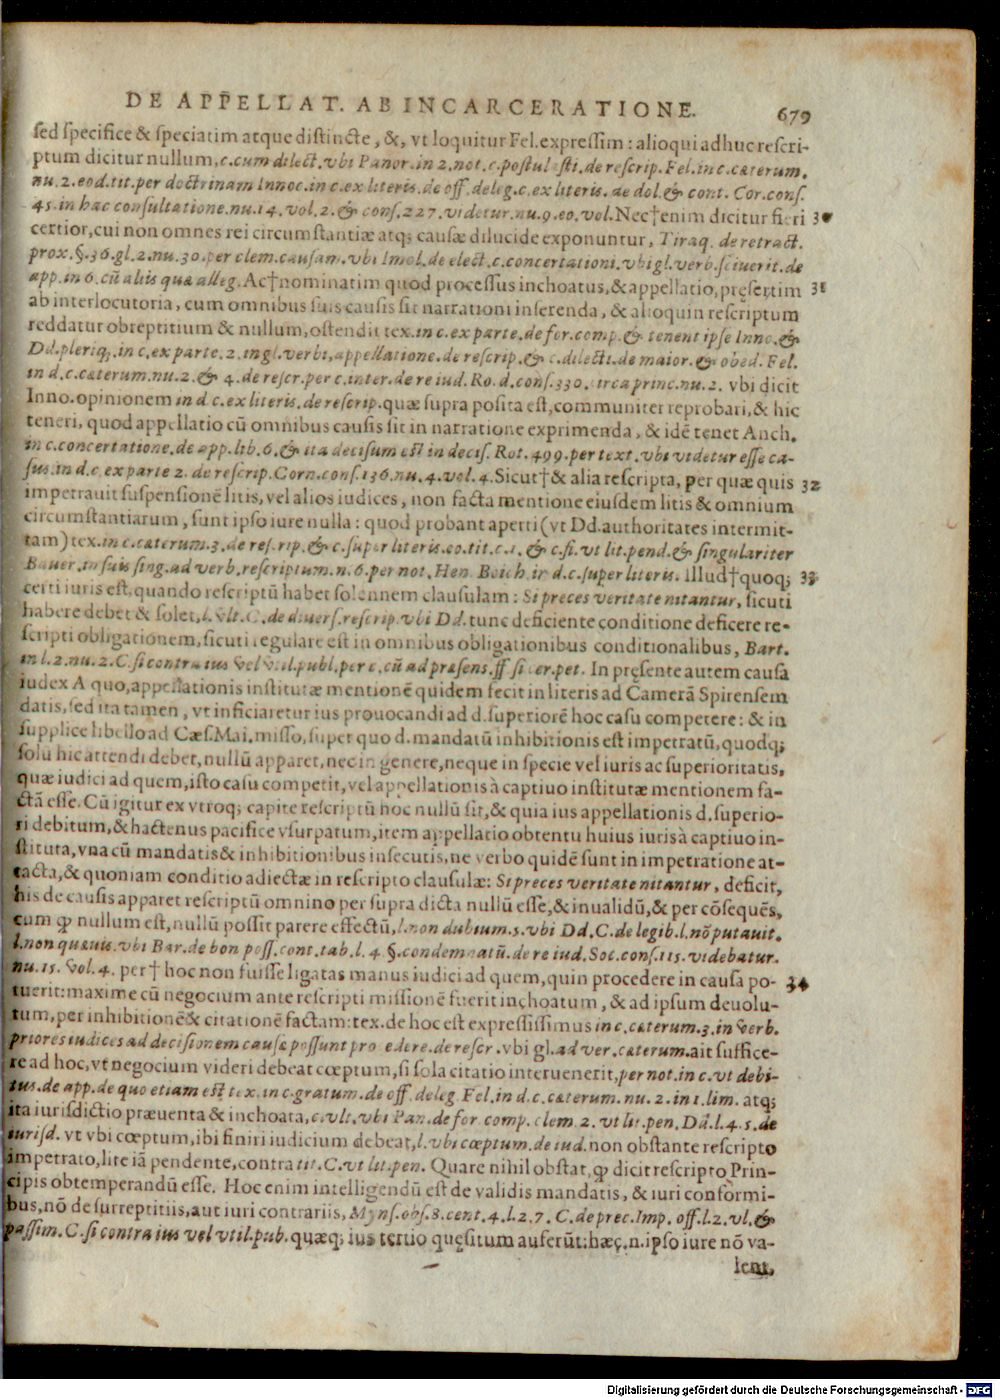 DE APPELLAT. AB INCARCERATIONE. 679
sed specifice & speciatim atque distincte, &, vt loquitur Fel. expressim: alioqui adhuc rescri-
ptum dicitur nullum, c. cum dilect. vbi Panor. in 2. not. c. postulasti. de rescrip. Fel. in c. cæterum.
nu. 2. eod. tit. per doctrinam Innoc. in c. ex literis. de off. deleg. c. ex literis. de dol. & cont. Cor. cons.
45. in hac consultatione. nu. 14. vol. 2. & cons. 227. videtur. nu. 9. eo. vol. Nec†enim dicitur fieri 30
certior, cui non omnes rei circumstantiæ atq; causæ dilucide exponuntur, Tiraq. de retract.
prox. §. 36. gl. 2. nu. 30. per clem. causam. vbi Imol. de elect. c. concertationi. vbi gl. verb. sciuerit. de
app. in 6. cū aliis quæ alleg. Ac†nominatim quod processus inchoatus, & appellatio, pręsertim 31
ab interlocutoria, cum omnibus suis causis sit narrationi inserenda, & alioquin rescriptum
reddatur obreptitium & nullum, ostendit tex. in c. ex parte. de for. comp. & tenent ipse Inno. &
Dd. pleriq; in c. ex parte. 2. in gl. verbi, appellatione. de rescrip. & c. dilecti. de maior. & obed. Fel.
in d. c. cæterum. nu. 2. & 4. de rescr. per c. inter. de re iud. Ro. d. cons. 330. circa princ. nu. 2. vbi dicit
Inno. opinionem in d c. ex literis. de rescrip. quæ supra posita est, communiter reprobari, & hic
teneri, quod appellatio cū omnibus causis sit in narratione exprimenda, & idē tenet Anch.
in c. concertatione. de app. lib. 6. & ita decisum est in decis. Rot. 499. per text. vbi videtur esse ca-
sus. in d. c. ex parte 2. de rescrip. Corn. cons. 136. nu. 4. vol. 4. Sicut†& alia rescripta, per quæ quis 32
impetrauit suspensionē litis, vel alios iudices, non facta mentione eiusdem litis & omnium
circumstantiarum, sunt ipso iure nulla: quod probant aperti (vt Dd. authoritates intermit-
tam) tex. in c. cæterum. 3. de rescrip. & c. super literis. eo. tit. c. 1. & c. si. vt lit. pend. & singulariter
Bauer. in suis sing. ad verb. rescriptum. n. 6. per not. Hen. Boich. in d. c. super literis. Illud†quoq; 33
certi iuris est, quando rescriptū habet solennem clausulam: Si preces veritate nitantur, sicuti
habere debet & solet, l. vlt. C. de diuers. rescrip. vbi Dd. tunc deficiente conditione deficere re-
scripti obligationem, sicuti regulare est in omnibus obligationibus conditionalibus, Bart.
in l. 2. nu. 2. C. si contra ius vel vtil. publ. per c. cū ad præsens. ff si cer. pet. In pręsente autem causa
iudex A quo, appellationis institutæ mentionē quidem fecit in literis ad Camerā Spirensem
datis, sed ita tamen, vt inficiaretur ius prouocandi ad d. superiorē hoc casu competere: & in
supplice libello ad Cæs. Mai. misso, super quo d. mandatū inhibitionis est impetratū, quodq;
solū hic attendi debet, nullū apparet, nec in genere, neque in specie vel iuris ac superioritatis,
quæ iudici ad quem, isto casu competit, vel appellationis à captiuo institutæ mentionem fa-
ctā esse. Cū igitur ex vtroq; capite rescriptū hoc nullū sit, & quia ius appellationis d. superio-
ri debitum, & hactenus pacifice vsurpatum, item appellatio obtentu huius iuris à captiuo in-
stituta, vna cū mandatis & inhibitionibus insecutis, ne verbo quidē sunt in impetratione at-
tacta, & quoniam conditio adiectæ in rescripto clausulæ: Si preces veritate nitantur, deficit,
his de causis apparet rescriptū omnino per supra dicta nullū esse, & inualidū, & per cōsequēs,
cum ꝙ nullum est, nullū possit parere effectū, l. non dubium. 5. vbi Dd. C. de legib. l. nō putauit.
l. non quæuis. vbi Bar. de bon poss. cont. tab. l. 4. §. condemnatū. de re iud. Soc. cons. 115. videbatur.
nu. 15. vol. 4. per† hoc non fuisse ligatas manus iudici ad quem, quin procedere in causa po- 34
tuerit: maxime cū negocium ante rescripti missionē fuerit inchoatum, & ad ipsum deuolu-
tum, per inhibitionē & citationē factam: tex. de hoc est expressissimus in c. cæterum. 3. in verb.
priores iudices ad decisionem causæ possunt procedere. de rescr. vbi gl. ad ver. cæterum. ait suffice-
re ad hoc, vt negocium videri debeat cœptum, si sola citatio interuenerit, per not. in c. vt debi-
tus. de app. de quo etiam est tex. in c. gratum. de off. deleg. Fel. in d. c. cæterum. nu. 2. in 1. lim. atq;
ita iurisdictio præuenta & inchoata, c. vlt. vbi Pan. de for. comp. clem 2. vt lit. pen. Dd. l. 4. 5. de
iurisd. vt vbi cœptum, ibi finiri iudicium debeat, l. vbi cœptum. de iud. non obstante rescripto
impetrato, lite iā pendente, contra tit. C. vt lit. pen. Quare nihil obstat, ꝙ dicit rescripto Prin-
cipis obtemperandū esse. Hoc enim intelligendū est de validis mandatis, & iuri conformi-
bus, nō de surreptitiis, aut iuri contrariis, Myns. obs. 8. cent. 4. l. 2. 7. C. de prec. Imp. off. l. 2. vl. &
passim. C. si contra ius vel vtil. pub. quæq; ius tertio quęsitum auferūt: hæc. n. ipso iure nō va-
lent,
Digitalisierung gefördert durch die Deutsche Forschungsgemeinschaft - DFG